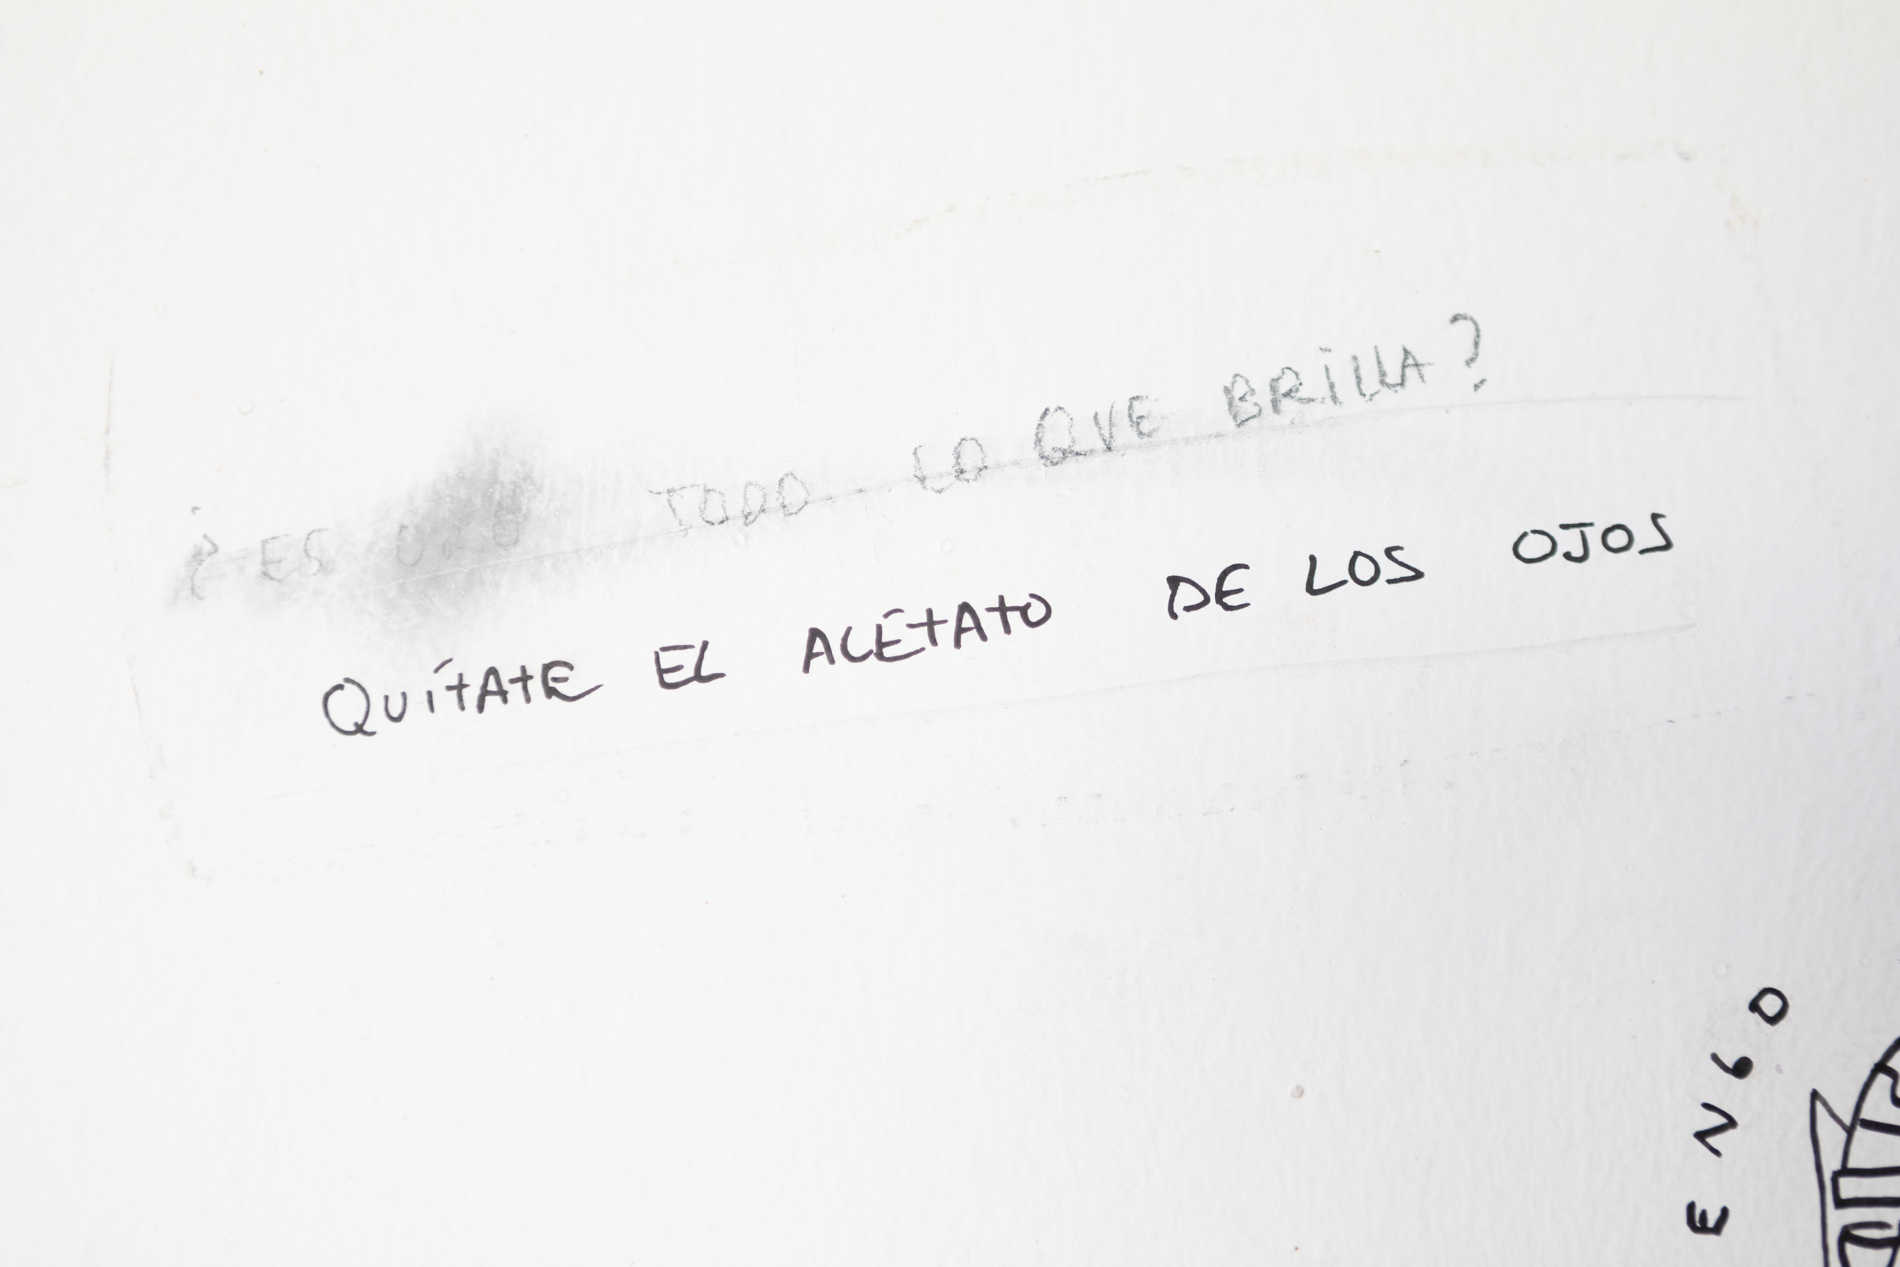 ¿ES ORO TODO LO QUE BRILLA?
QUÍTATE EL ACÉTATO DE LOS OJOS
ENGO